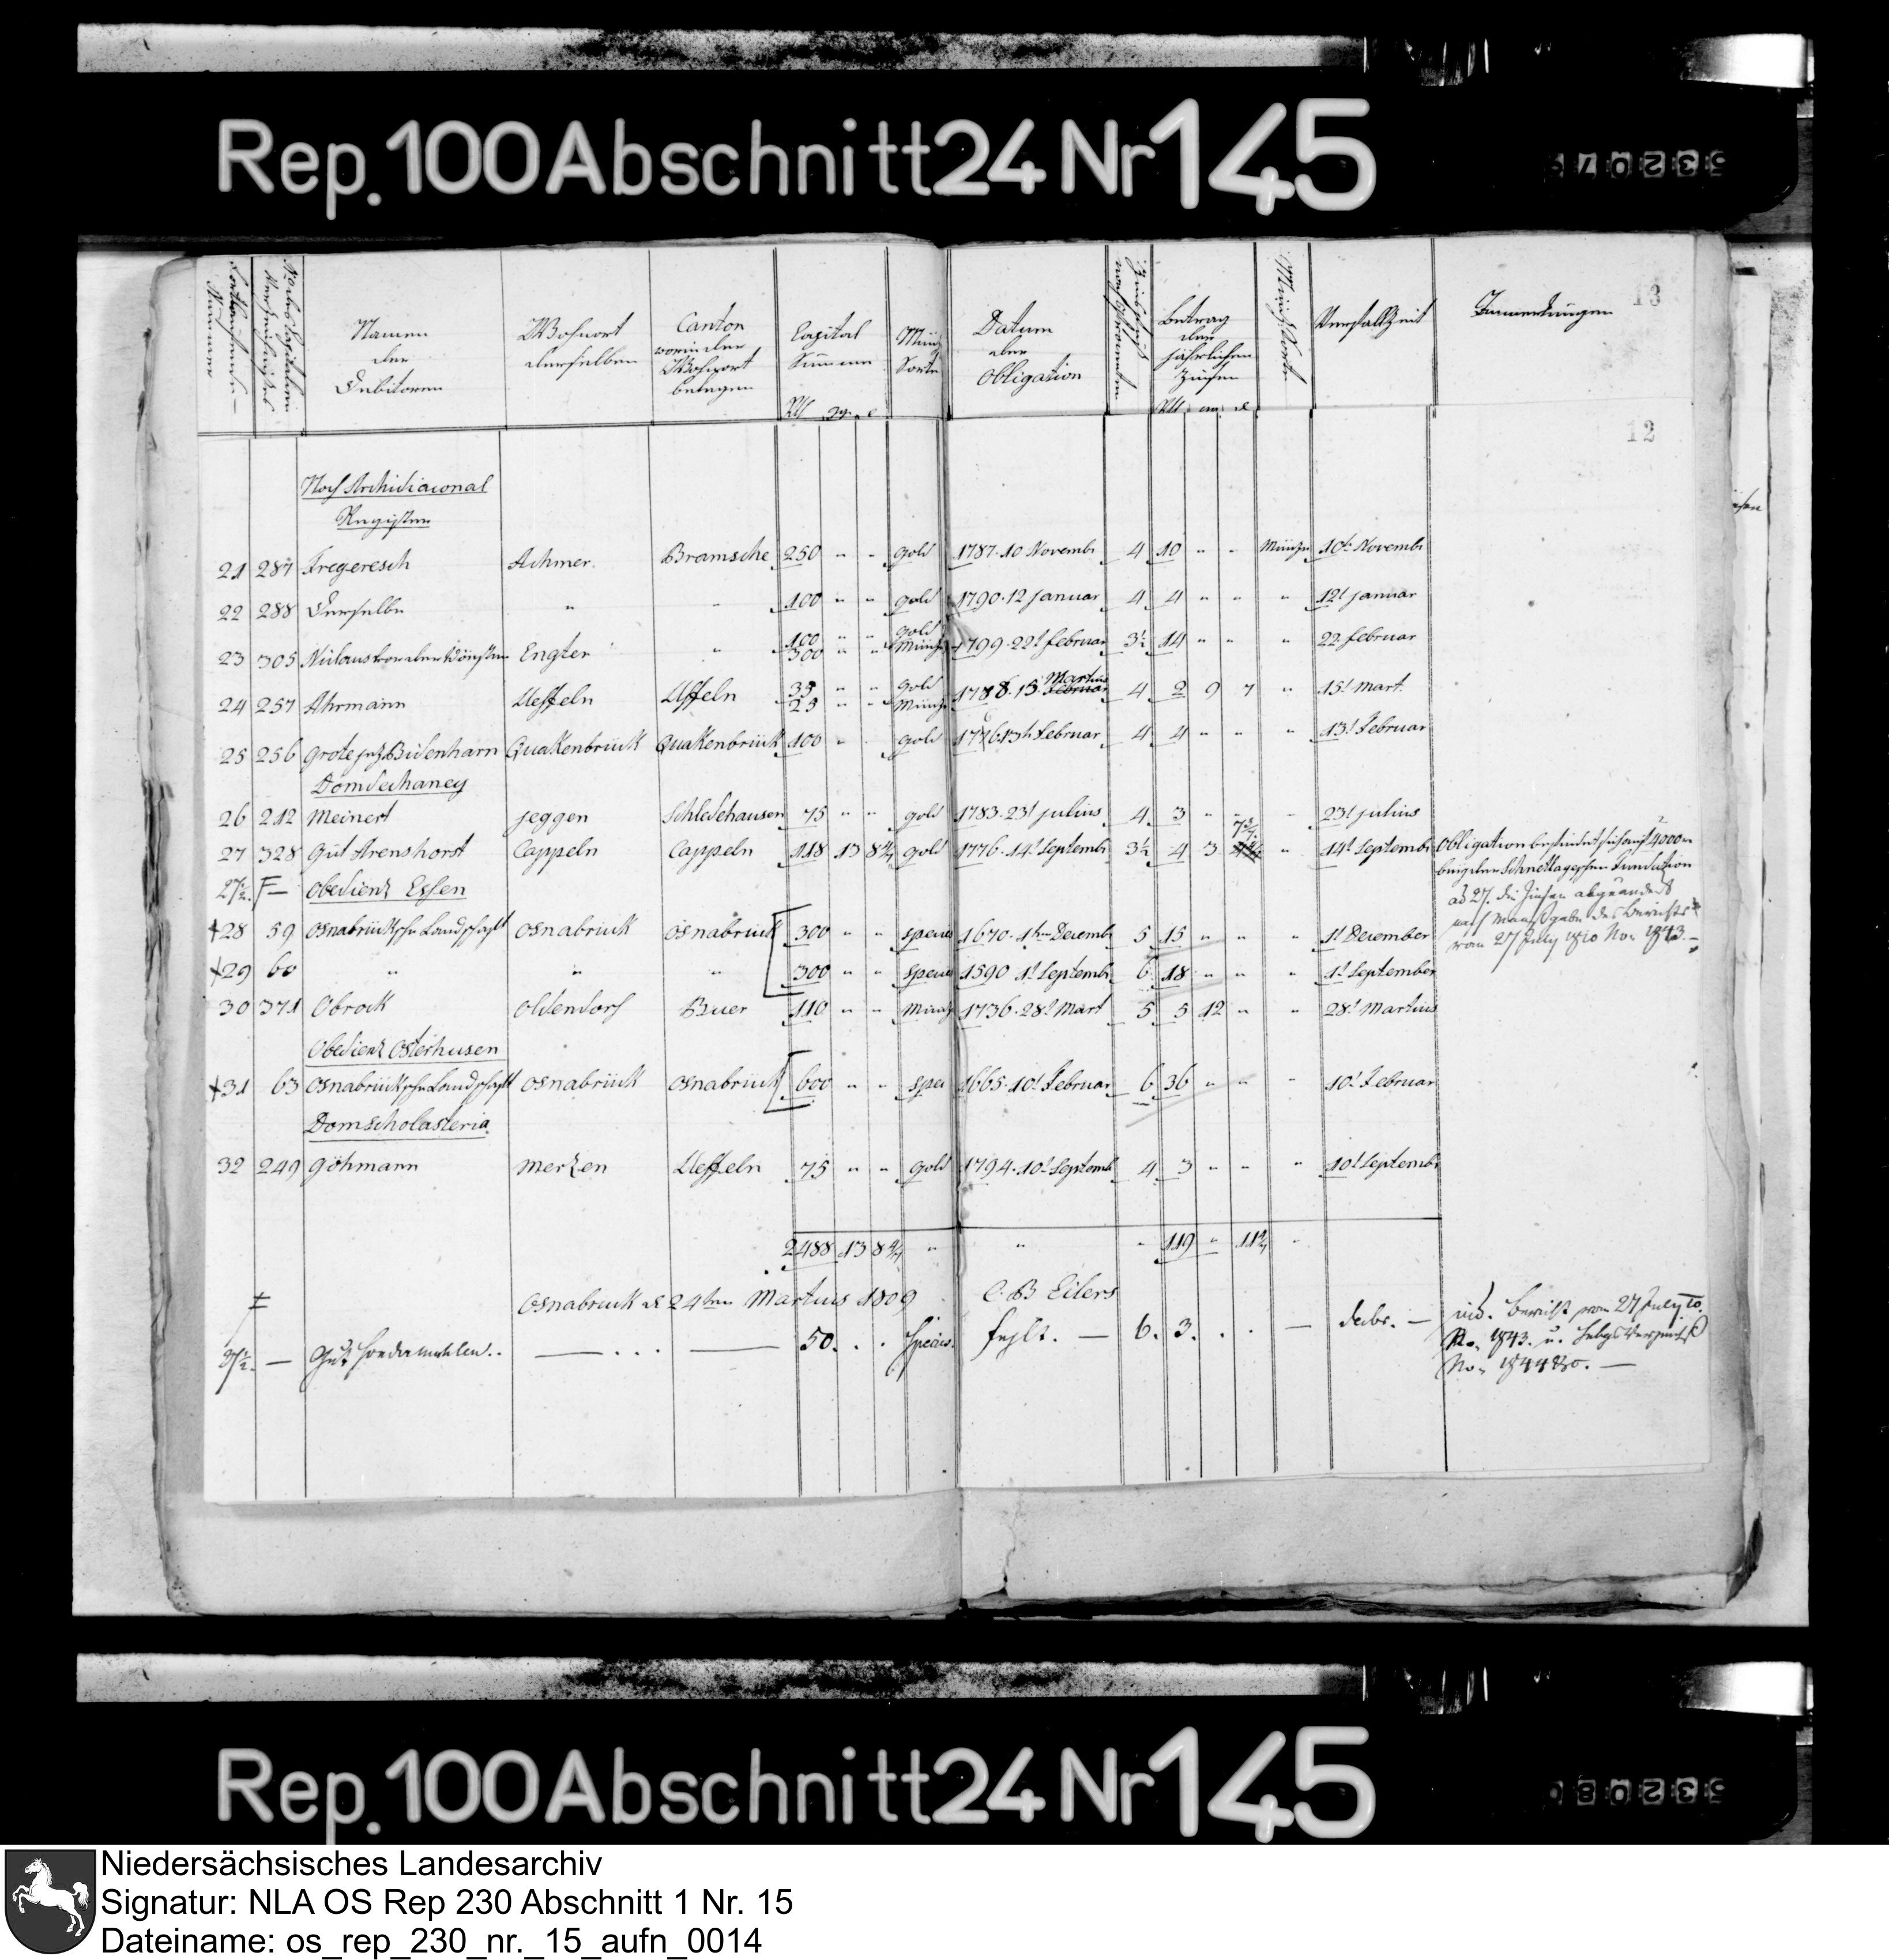 Rep. 100 Abschnitt 24 Nr 145
53207
13
Fortlaufende Nummer
Namen der Debitoren
Wohnort derselben
Canton worin der Wohnort belegen
Capital Summe
Rtl ggr d
Münz Sorte
Datum der Obligation
Betrag der jährlichen Zinsen
Rtl d
Münzsorte
Verfallzeit
Anmerkungen
12
Noch Archidiaconal
Register
21 287 Fregeresch Achmer. Bramsche 250 " " gold 1787. 10 Novembr 4 10 " " Münze 10t Novembr
22 288 Derselbe " " 100 " " gold 1790. 12 Januar 4 4 " " " 12t Januar
23 305 Engter " 100 " " gold 300 " " Münze 1799. 22t Februar 3½ 14 " " " 22 Februar
24 257 Ahrmann Ueffeln Uffeln 35 " " gold 25 " " Münze 1788. 15 Martius Februar 4 2 9 7 " 15t Mart.
25 256 Grote jetz Bidenharn Quakenbrück Quakenbrück 100 " gold 1776 13t Februar 4 4 " " " 13t Februar
Domdechaney
26 212 Meinert Jeggen Schledehausen 75 " " gold 1783. 23t Julius 4 3 " " " 23t Julius
27 328 Gut Arenshorst Cappeln Cappeln 118 13 8 4/7 gold 1776. 14t Septembr 3½ 4 3 " 14t September Obligation befindet sich auf 4000
bey der Schnetlageschen Fundation
27½. F— Obedienz Essen
ad 27. die Zinsen abgeändert
nach Maasgabe des Berichts
vom 27 July 1810 No. 1843. —
+28 59 Osnabrücksche Landschaft Osnabrück Osnabrück 300 " " specie 1670. 1ten Decembr 5 15 " " " 1t December
+29 60 " " " 300 " " specie 1590 1t Septembr 6 18 " " " 1t September
30 371 Obrock Oldendorf Buer 110 " " Münze 1736. 28t Mart 5 5 12 " " 28t Martius
Obedienz Osterhusen
+31 63 Osnabrücksche Landschaft Osnabrück Osnabrück 600 " " spec 1665. 10t Februar 6 36 " " " 10t Februar
Domscholasteria
32 249 Göhmann Merzen Ueffeln 75 " " gold 1794. 10t Septemb 4 3 " " " 10t Septembr
2488 13 8 4/7 " " " 119 " "
Osnabruck d 24ten Martius 1809 C. B Eilers
27½. — Gut Sondermühlen. — — 50. . . Specie. fehlt. — 6. 3. . . — decbr. — vid. Bericht vom 27 July 10.
No. 1843. u.
No. 1844
Rep. 100 Abschnitt 24 Nr 145
53208
Niedersächsisches Landesarchiv
Signatur: NLA OS Rep 230 Abschnitt 1 Nr. 15
Dateiname: os_rep_230_nr._15_aufn_0014